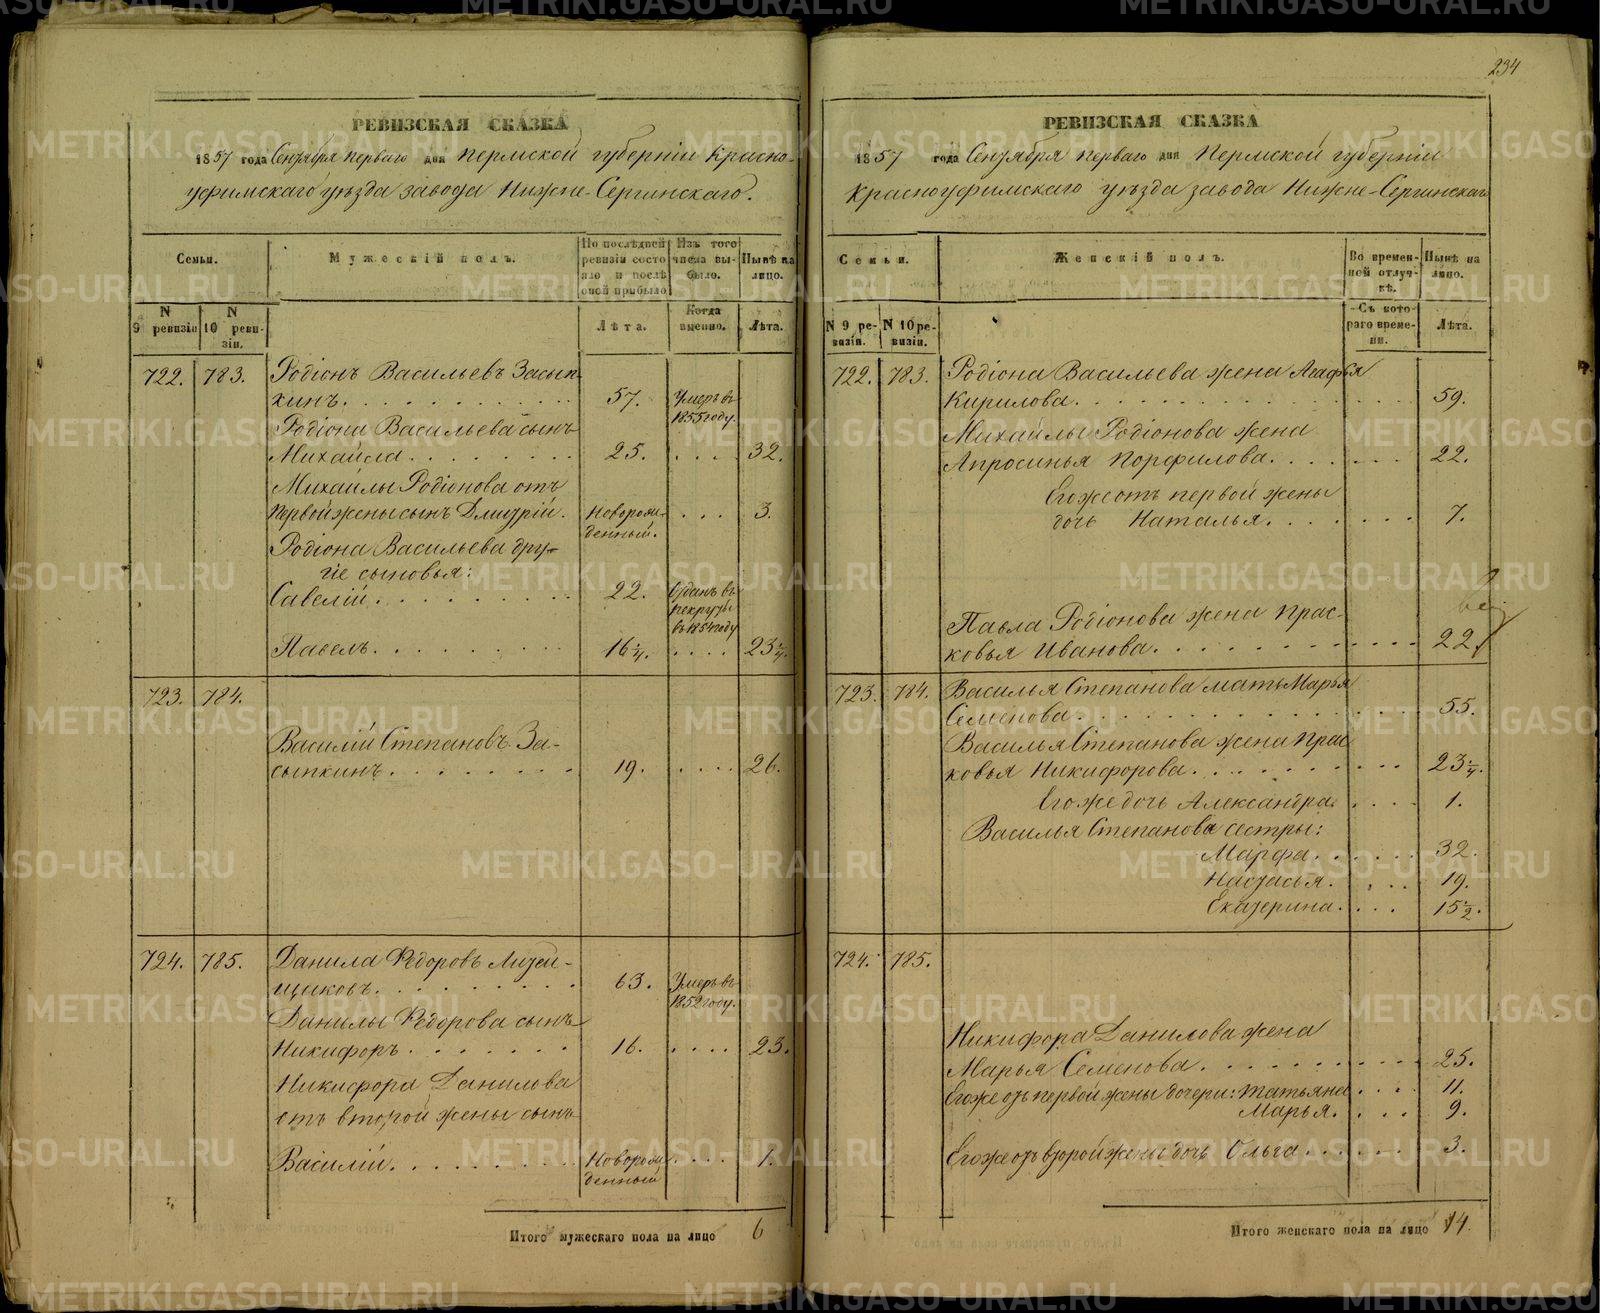 РЕВИЗСКАЯ СКАЗКА
1857 года Сентября перваго дня Пермской губерніи Красно-
уфимскаго уѣзда завода Нижне-Сергинскаго.
Семьи.
Мужескій полъ.
По послѣдней ревизіи состояло и послѣ оной прибыло
Изъ того числа выбыло.
Нынѣ на лицо.
N 9 ревизіи
N 10 ревизіи.
Лѣта.
Когда именно.
Лѣта.
722. 783. Родіонъ Васильевъ Засып-
кинъ. 57. Умеръ въ 1855 году.
Родіона Васильева сынъ
Михайла. 25. 32.
Михайлы Родіонова отъ
первой жены сынъ Дмитрій. Новорожденный. 3.
Родіона Васильева дру-
гіе сыновья:
Савелій. 22. Отданъ въ рекруты въ 1854 году
Павелъ. 16¼. 23¼.
723. 784.
Василій Степановъ За-
сыпкинъ. 19. 26.
724. 785. Данила Ѳедоровъ Литей-
щиковъ. 63. Умеръ въ 1852 году.
Данилы Ѳедорова сынъ
Никифоръ. 16. 23.
Никифора Данилова
отъ второй жены сынъ
Василій. Новорожденный 1.
Итого мужескаго пола на лицо 6
234
РЕВИЗСКАЯ СКАЗКА
1857 года Сентября перваго дня Пермской губерніи
Красноуфимскаго уѣзда завода Нижне-Сергинскаго
Семьи.
Женскій полъ.
Во временной отлучкѣ.
Нынѣ на лицо.
N 9 ревизіи.
N 10 ревизіи.
Съ котораго времени.
Лѣта.
722. 783. Родіона Васильева жена Агафья
Кирилова. 59.
Михайлы Родіонова жена
Апросинья Порфилова. 22.
Егоже отъ первой жены
дочь Наталья. 7.
Павла Родіонова жена Прас-
ковья Иванова. 22
723. 784. Василья Степанова мать Марья
Семенова. 55.
Василья Степанова жена Прас
ковья Никифорова. 23¼.
Егоже дочь Александра. 1.
Василья Степанова сестры:
Марфа. 32.
Настасья. 19.
Екатерина. 15½.
724. 785.
Никифора Данилова жена
Марья Семенова. 25.
Егоже отъ первой жены дочери: Татьяна 11.
Марья. 9.
Егоже отъ второй жены дочь Ольга. 3.
Итого женскаго пола на лицо 14
METRIKI.GASO-URAL.RU